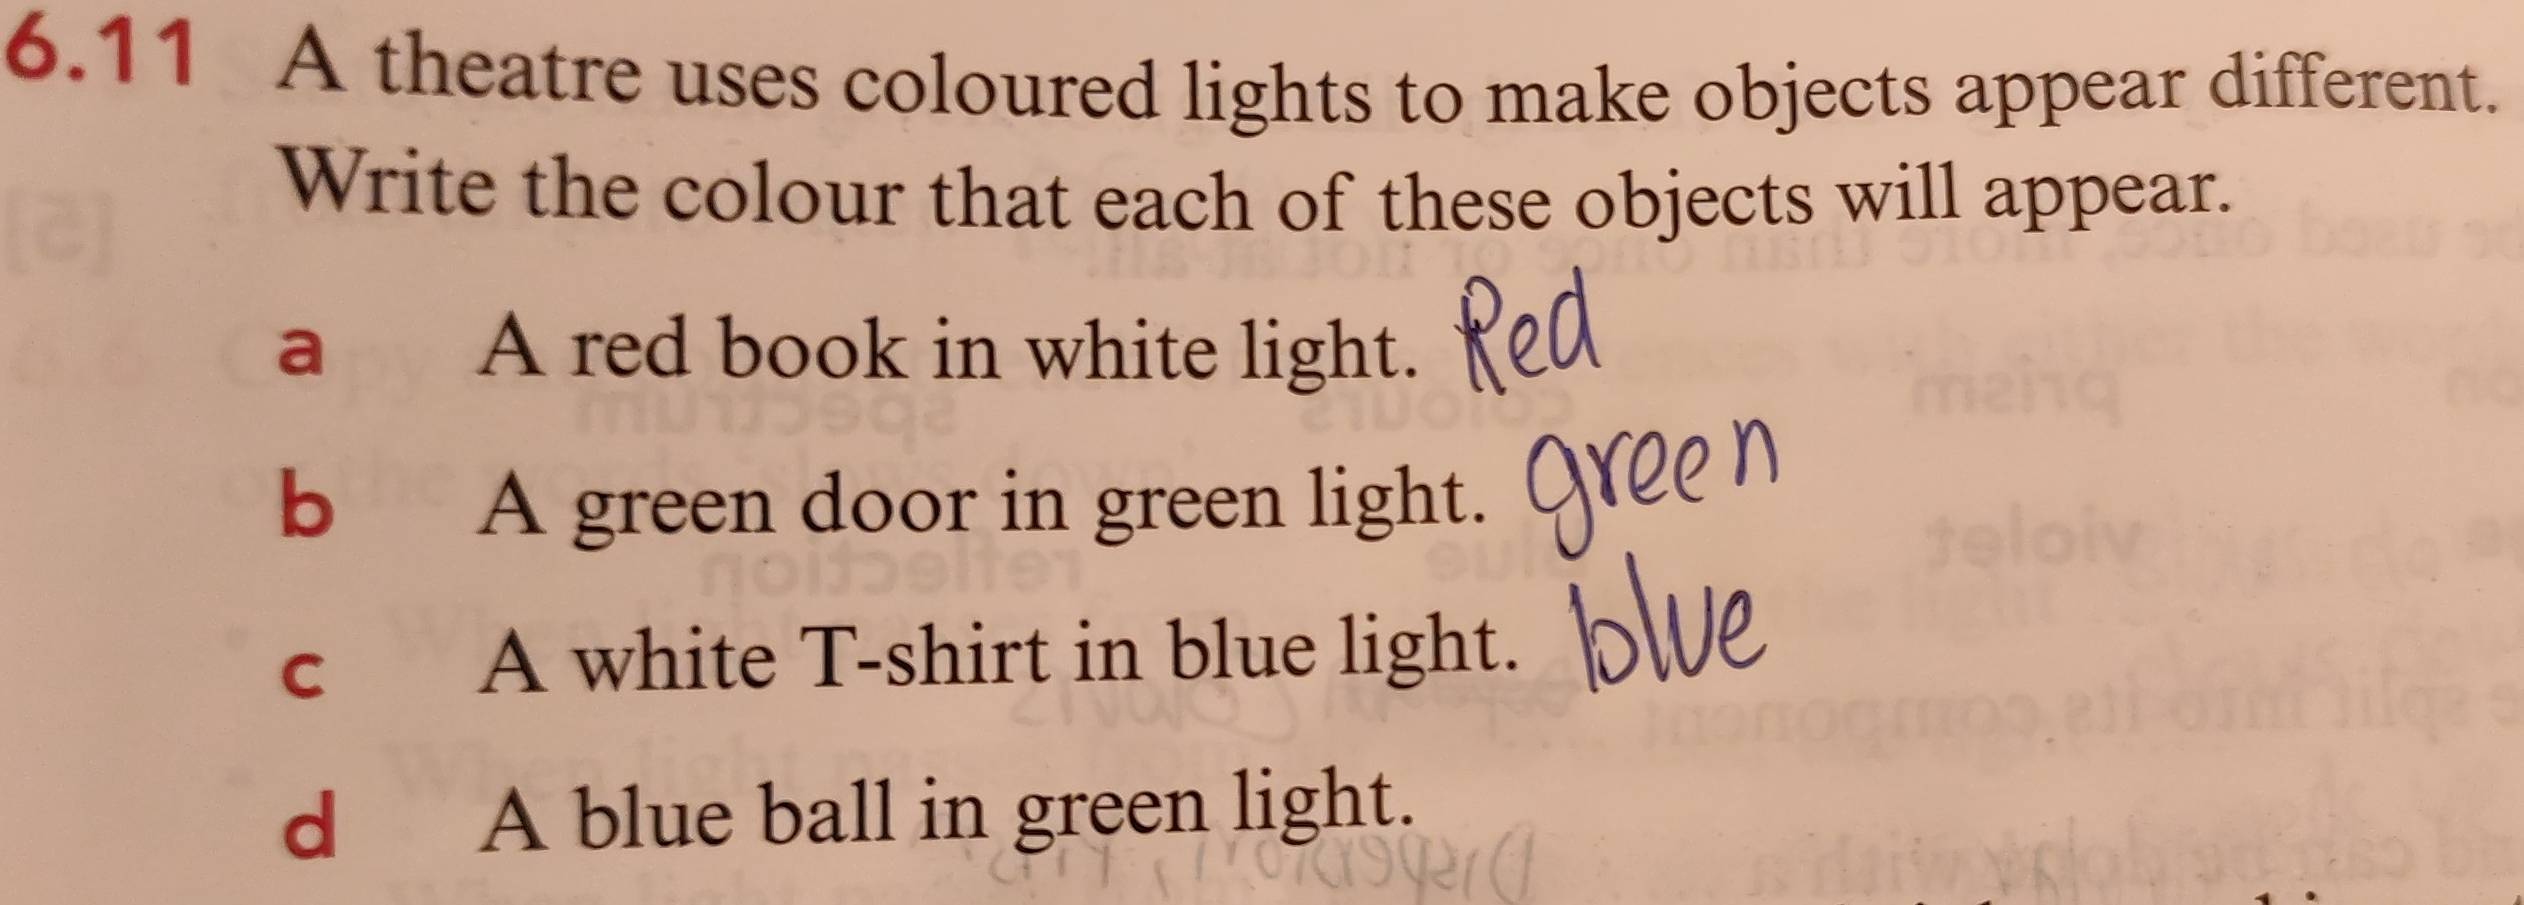 6.11 A theatre uses coloured lights to make objects appear different.
Write the colour that each of these objects will appear.
a A red book in white light. Red
b A green door in green light. green
c A white T-shirt in blue light. blue
d A blue ball in green light.